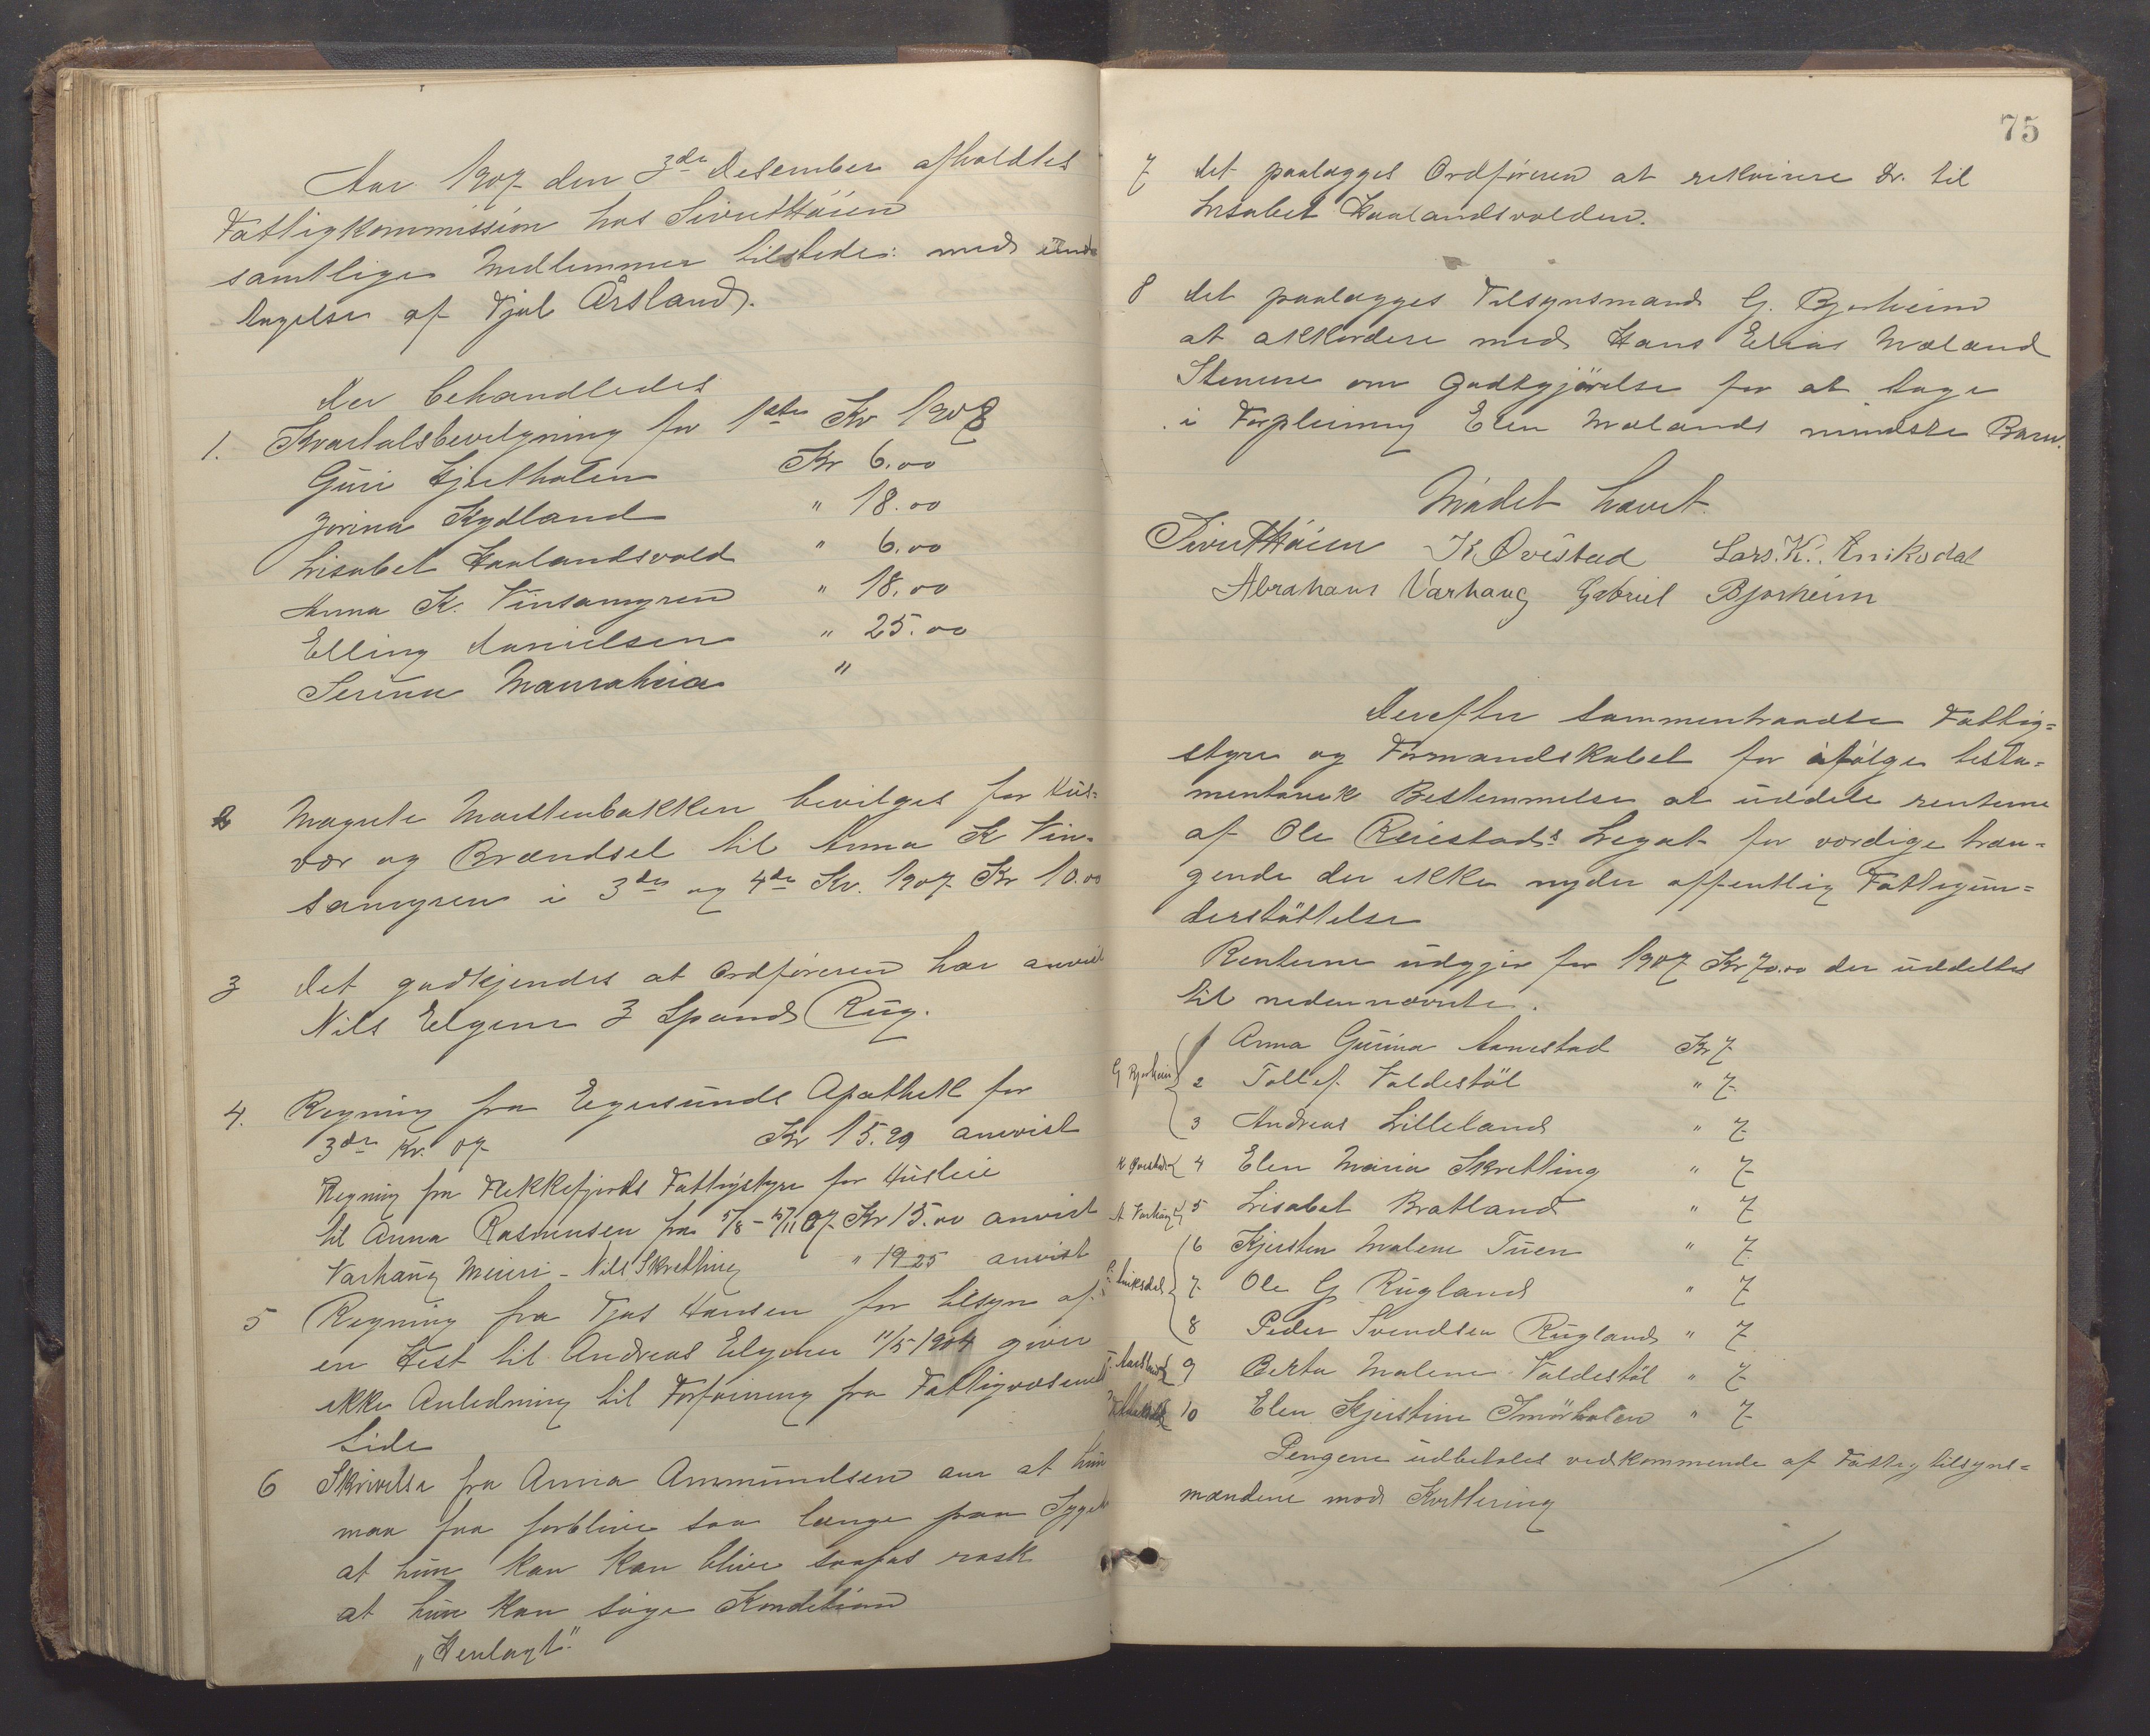 Aar 1907 den 3de Desember afholdtes
Fattigkommission hos Sivert Höien
samtlige Medlemmer tilstede: med und-
tagelse af Tjøl Årsland.
Der behandledes
1. Kvartalsbevilgning for 1ste Kv 1908
Guri Hjertholen Kr 6.00
Jorina Rydland " 18.00
Lisabet Haalandsvold " 6.00
Anna K. Vinsamyren " 18.00
Elling Danielsen " 25.00
Serina Mauraheia "
2 Magrete Moiltenbakken bevilges for Hus-
vær og Brændsel til Anna K Vin-
samyren i 3die og 4de Kv. 1907 Kr 10.00
3 Det godkjendes at Ordføreren har anvist
Nils Elgene 3 Spand Rug.
4. Regning fra Egersunds Apothek for
3die Kv. 07 Kr 15.29 anvist
Regning fra Flekkefjords Fattigstyre for Husleie
til Anna Rasmusen fra 5/8 - 5/11 07 Kr 15.00 anvist
Varhaug Meieri - Nils Skretting " 19 25 anvist
5 Regning fra Tjøs Hansen for tilsyn af
en Hest til Andreas Elgene 11/5 1904 giver
ikke Anledning til Forføining fra Fattigvæsenets
Side
6 Skrivelse fra Anna Ammundsen om at hun
maa faa forblive saa længe paa Sygeh
at hun kan kan blive saapas rask
at hun kan søge Kondition
„Henlagt"
75
7 Det paalægges Ordføreren at rekvirere Dr. til
Lisabet Haalandsvolden.
8 Det paalægges Tilsynsmand G. Bjorheim
at akkordere med Hans Elias Mæland
Stenene om Godtgjörelse for at tage
i Forpleining Elen Mælands mindste Barn.
Mødet hævet.
Sivert Höien K. Ovestad Lars. K. Eniksdal
Abraham Varhaug Gabriel Bjorheim
Derefter sammentraadte Fattig=
styre og Formandskabet for ifölge testa=
mentarisk Bestemmelse at uddele renterne
af Ole Reiestads Legat for værdige træn=
gende der ikke nyder offentlig Fattigun=
derstöttelse
Renterne udgjör for 1907 Kr 70.00 der uddeltes
til nedennævnte.
G Bjorheim 1 Anna Gurina Aanestad Kr 7
2 Tollef Valdestöl " 7
3 Andreas Lilleland " 7
K Ovestad 4 Elen Maria Skretting " 7
A Varhaug 5 Lisabet Bratland " 7
6 Kjersten Malene Tuen " 7
Eniksdal 7 Ole G Rugland " 7
8 Peder Svendsen Rugland " 7
9 Berta Malene Valdestöl " 7
10 Elen Kjerstine Smörholen " 7
Pengene udbetales vedkommende af Fattigtilsyns=
mændene mod Kvittering